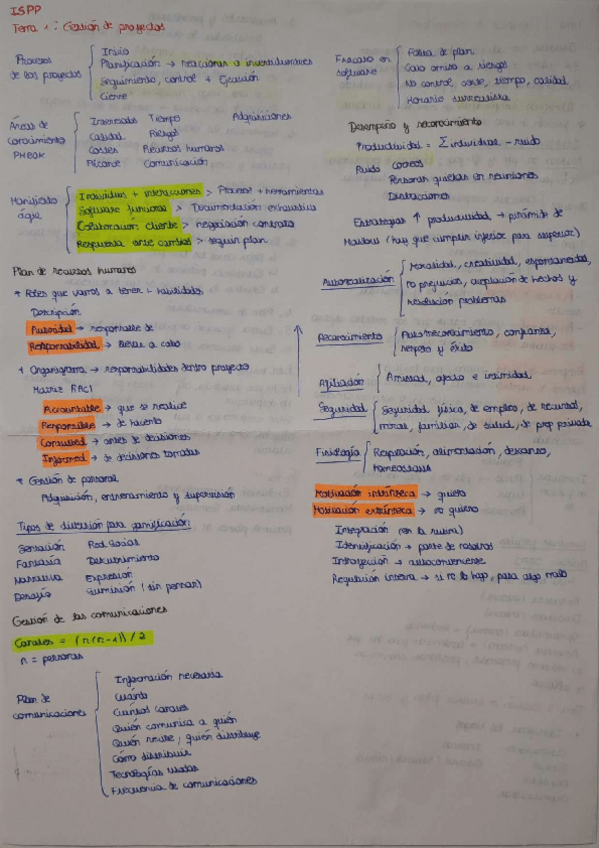 ISPP
Tema 1: Gestión de proyectos
Procesos de los proyectos
Inicio
Planificación → reaccionar a incertidumbres
Seguimiento, control + Ejecución
Cierre
Áreas de conocimiento PMBOK
Interesados Tiempo Adquisiciones
Calidad Riesgos
Costes Recursos humanos
Alcance Comunicación
Manifiesto ágil
Individuos + interacciones > Procesos + herramientas
Software funcional > Documentación exhaustiva
Colaboración cliente > negociación contrato
Respuesta ante cambios > seguir plan
Plan de recursos humanos
* Roles que vamos a tener + habilidades
Descripción
Autoridad → responsable de
Responsabilidad → llevar a cabo
* Organigrama → responsabilidades dentro proyecto
Matriz RACI
Accountable → que se realice
Responsible → de hacerlo
Consulted → antes de decisiones
Informed → de decisiones tomadas
* Gestión de personal
Adquisición, entrenamiento y supervisión
Tipos de diversión para gamificación
Sensación Red Social
Fantasía Descubrimiento
Narrativa Expresión
Desafío Sumisión (sin pensar)
Gestión de las comunicaciones
Canales = (n(n-1))/2
n = personas
Plan de comunicaciones
Información necesaria
Cuándo
Cuántos canales
Quién comunica a quién
Quién recibe, quién distribuye
Cómo distribuir
Tecnologías usadas
Frecuencia de comunicaciones
Fracaso en software
Falta de plan
Caso omiso a riesgos
No control, coste, tiempo, calidad
Horario surrealista
Desempeño y reconocimiento
Productividad = Σ individual - ruido
Ruido
correos
Personas quietas en reuniones
Distracciones
Estrategias ↑ productividad → pirámide de
Maslow (hay que cumplir inferior para superior)
Autorrealización
Moralidad, creatividad, espontaneidad,
no prejuicios, aceptación de hechos y
resolución problemas
Reconocimiento
Autorreconocimiento, confianza,
respeto y éxito
Afiliación
Amistad, afecto e intimidad
Seguridad
Seguridad física, de empleo, de recursos,
moral, familiar, de salud, de prop privada
Fisiología
Respiración, alimentación, descanso,
homeostasis
Motivación intrínseca → quiero
Motivación extrínseca → no quiero
Integración (en la rutina)
Identificación → parte de nosotros
Introyección → autoconvencerse
Regulación interna → si no lo hago, pasa algo malo